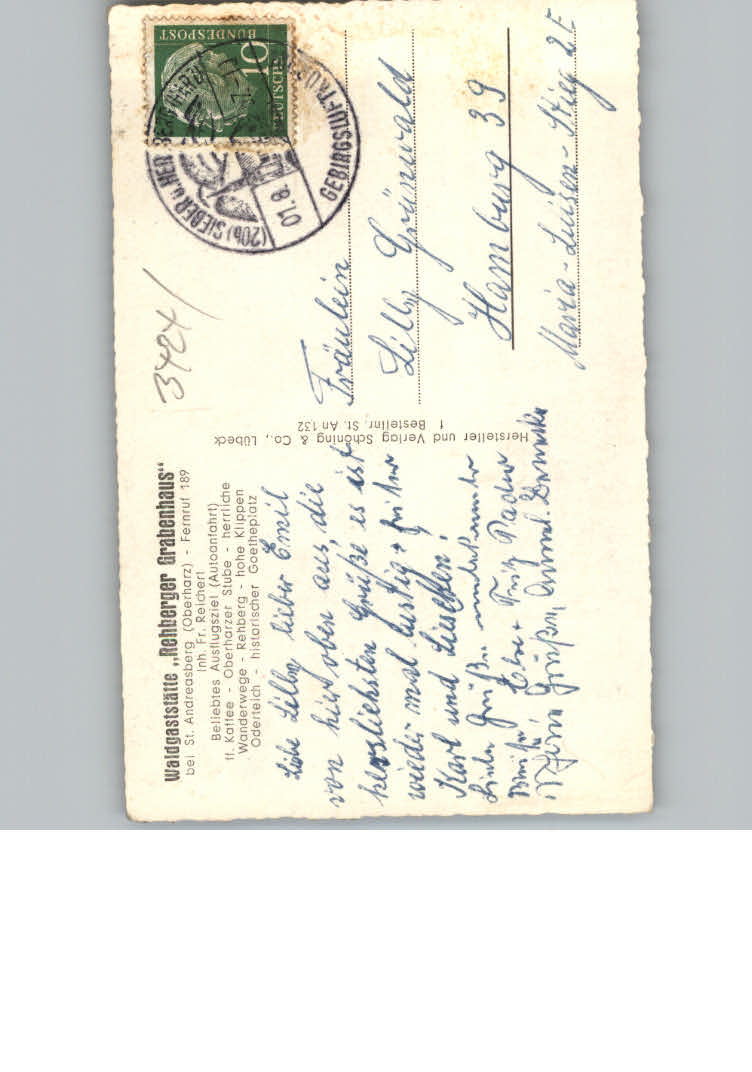 Waldgaststätte „Rehberger Grabenhaus"
bei St. Andreasberg (Oberharz) - Fernruf 189
Inh. Fr. Reichert
Beliebtes Ausflugsziel (Autoanfahrt)
ff. Kaffee - Oberharzer Stube - herrliche
Wanderwege - Rehberg - hohe Klippen
Oderteich - historischer Goetheplatz
Liebe Lilly lieber Emil
von hier oben aus, die
herzlichsten Grüße es ist
wieder mal lustig +
Karl und Lieschen!
Grüße unbekannter
Else + Fritz
Grüßen
Hersteller und Verlag Schöning & Co., Lübeck
1 Bestellnr. St. An 132
3484/
10
DEUTSCHE
BUNDESPOST
(20b) SIEBER ü. HERZBERG
01.8.
GEBIRGSLUFTKU
Fräulein
Lilly Grünwald
Hamburg 39
Maria-Luisen-Stieg 2E